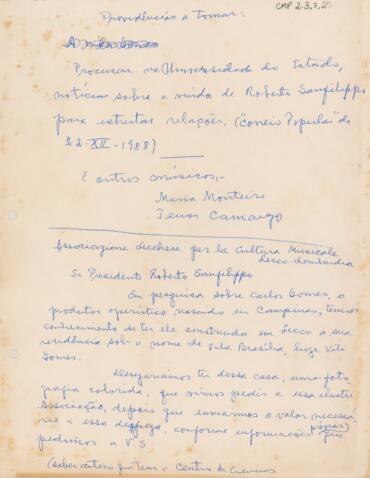 CMP 2.3.7.25
Providências a tomar:
Procurar na Universidade do Estado,
notícias sobre a vinda de Roberto Sanfilippo
para estreitar relações. ("Correio Popular" de
22-XII-1988)
E outros músicos,-
Maria Monteiro
Tenor Camargo
Associazione Lecchese per la Cultura Musicale,
Lecco-Lombardia
Sr Presidente Roberto Sanfilippo
Em pesquisa sobre Carlos Gomes, o
produtor operístico nascido em Campinas, temos
conhecimento de ter ele construido em Lecco a sua
residência sob o nome de Vila Brasília, hoje Vila
Gomes.
Desejaríamos ter dessa casa, uma foto
grafia colorida, que vimos pedir a essa ilustre
Associação, depois que enviarmos o valor necessá
rio a essa despeza, conforme informações prévias que
pedimos a V.S
(saber antes o que tem o Centro de Ciencias